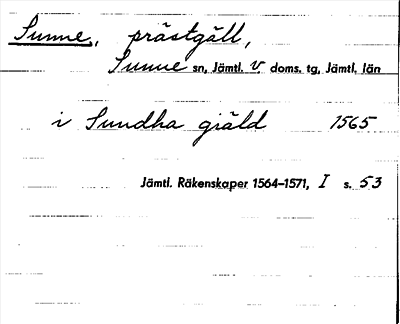 Sunne, prästgäll,
Sunne sn, Jämtl. V. doms. tg, Jämtl. län
i Sundha giäld 1565
Jämtl. Räkenskaper 1564–1571, I s. 53